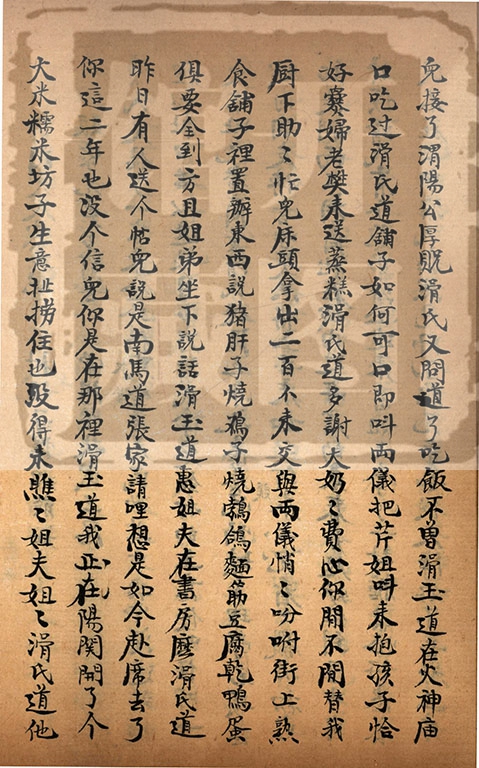 兒接了渭陽公厚貺滑氏又問道了吃飯不曽滑玉道在火神庙
口吃过滑氏道舖子如何可口即呌兩儀把芹姐呌耒抱孩子恰
好爨婦老樊耒送蒸糕滑氏道多謝大奶〻費心你閒不閒替我
厨下助〻忙兒床頭拿出二百不耒交與兩儀悄〻吩咐街上熟
食舖子裡置辦東西說猪肝子燒子燒鵓鴿麵筋豆腐乾鴨蛋
俱要全到方且姐弟坐下說話滑玉道惠姐夫在書房麽滑氏道
昨日有人送个帖兒說是南馬道張家請哩想是如今赴席去了
你這二年也没个信兒你是在那裡滑玉道我正在陽関開了个
大米糯米坊子生意扯捞住也殁得耒瞧〻姐夫姐〻滑氏道他